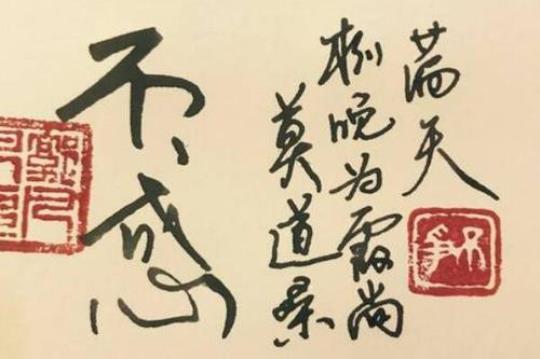 不惑
莫道桑
榆晚为霞尚
满天
不争